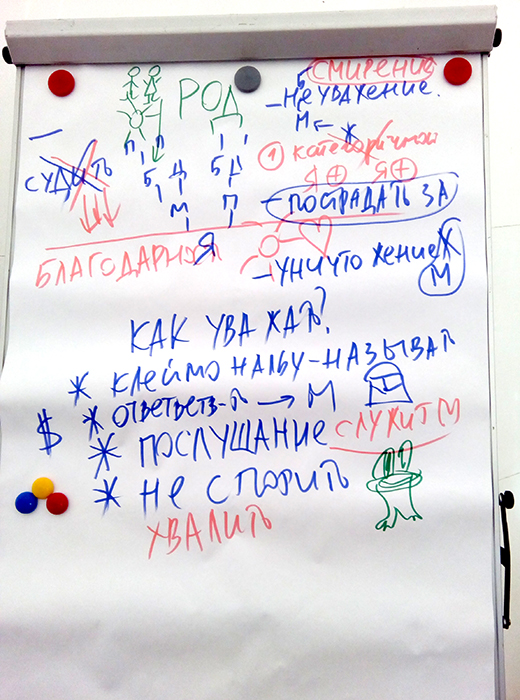 СМИРЕНИЕ
РОД
- НЕУВАЖЕНИЕ.
М ← Ж
П П
П П
① категоричной
СУДИТЬ
Б Д
Б Д
Я ⊕ Я ⊕
М
П
- ПОСТРАДАТЬ ЗА
Я
БЛАГОДАРНОСТЬ
- УНИЧТОЖЕНИЕ Ж
М
КАК УВАЖАТЬ?
* КЛЕЙМО НА ЛБУ - НАЗЫВАТ
$ * ответств-ть → М
* ПОСЛУШАНИЕ СЛУЖИТ М
* НЕ СПОРИТЬ
ХВАЛИТЬ